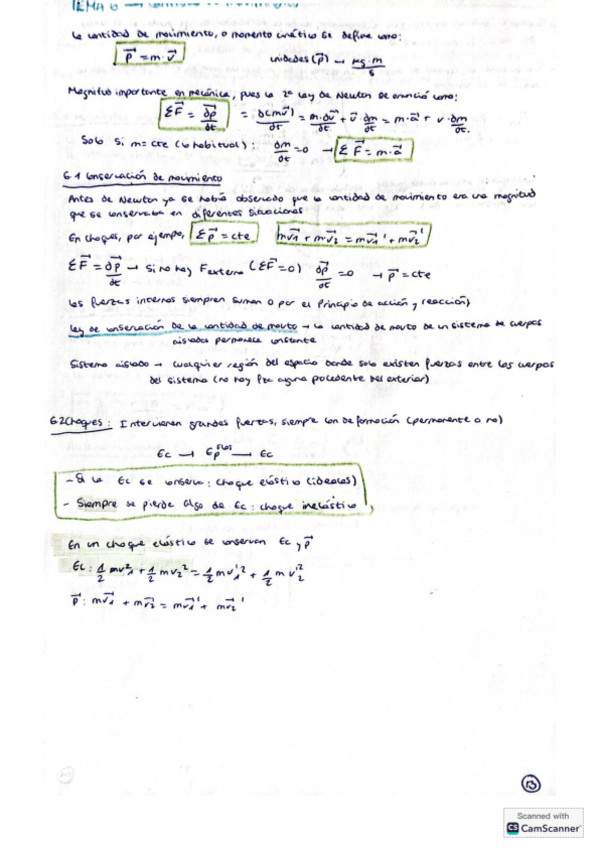 TEMA 6 →
La cantidad de movimiento, o momento cinético se define como:
p⃗ = m·v⃗ unidades (p⃗) → kg·m/s
Magnitud importante en mecánica, pues la 2ª Ley de Newton se enunció como:
ΣF⃗ = ∂p⃗/∂t = ∂(mv⃗)/∂t = m·∂v⃗/∂t + v⃗·∂m/∂t = m·a⃗ + v·∂m/∂t.
Solo si m=cte (lo habitual): ∂m/∂t = 0 → ΣF⃗ = m·a⃗
6.1 Conservación de movimiento
Antes de Newton ya se había observado que la cantidad de movimiento era una magnitud
que se conservaba en diferentes situaciones
En choques, por ejemplo, Σp⃗ = cte mv⃗1 + mv⃗2 = mv⃗1' + mv⃗2'
ΣF⃗ = ∂p⃗/∂t → Si no hay F externa (ΣF⃗=0) ∂p⃗/∂t = 0 → p⃗ = cte
Las fuerzas internas siempren suman 0 por el Principio de acción y reacción)
Ley de conservación de la cantidad de movto → La cantidad de movto de un sistema de cuerpos
aislados permanece constante
Sistema aislado → Cualquier región del espacio donde solo existen fuerzas entre los cuerpos
del sistema (no hay fza alguna procedente del exterior)
6.2 Choques: Intervienen grandes fuerzas, siempre con deformación (permanente o no)
Ec → Ep elas → Ec
- Si la Ec se conserva: choque elástico (ideales)
- Siempre se pierde algo de Ec: choque inelástico
En un choque elástico se conservan Ec y p⃗
Ec: 1/2 mv1² + 1/2 mv2² = 1/2 mv1'² + 1/2 mv2'²
p⃗: mv⃗1 + mv⃗2 = mv⃗1' + mv⃗2'
13
Scanned with
CS CamScanner